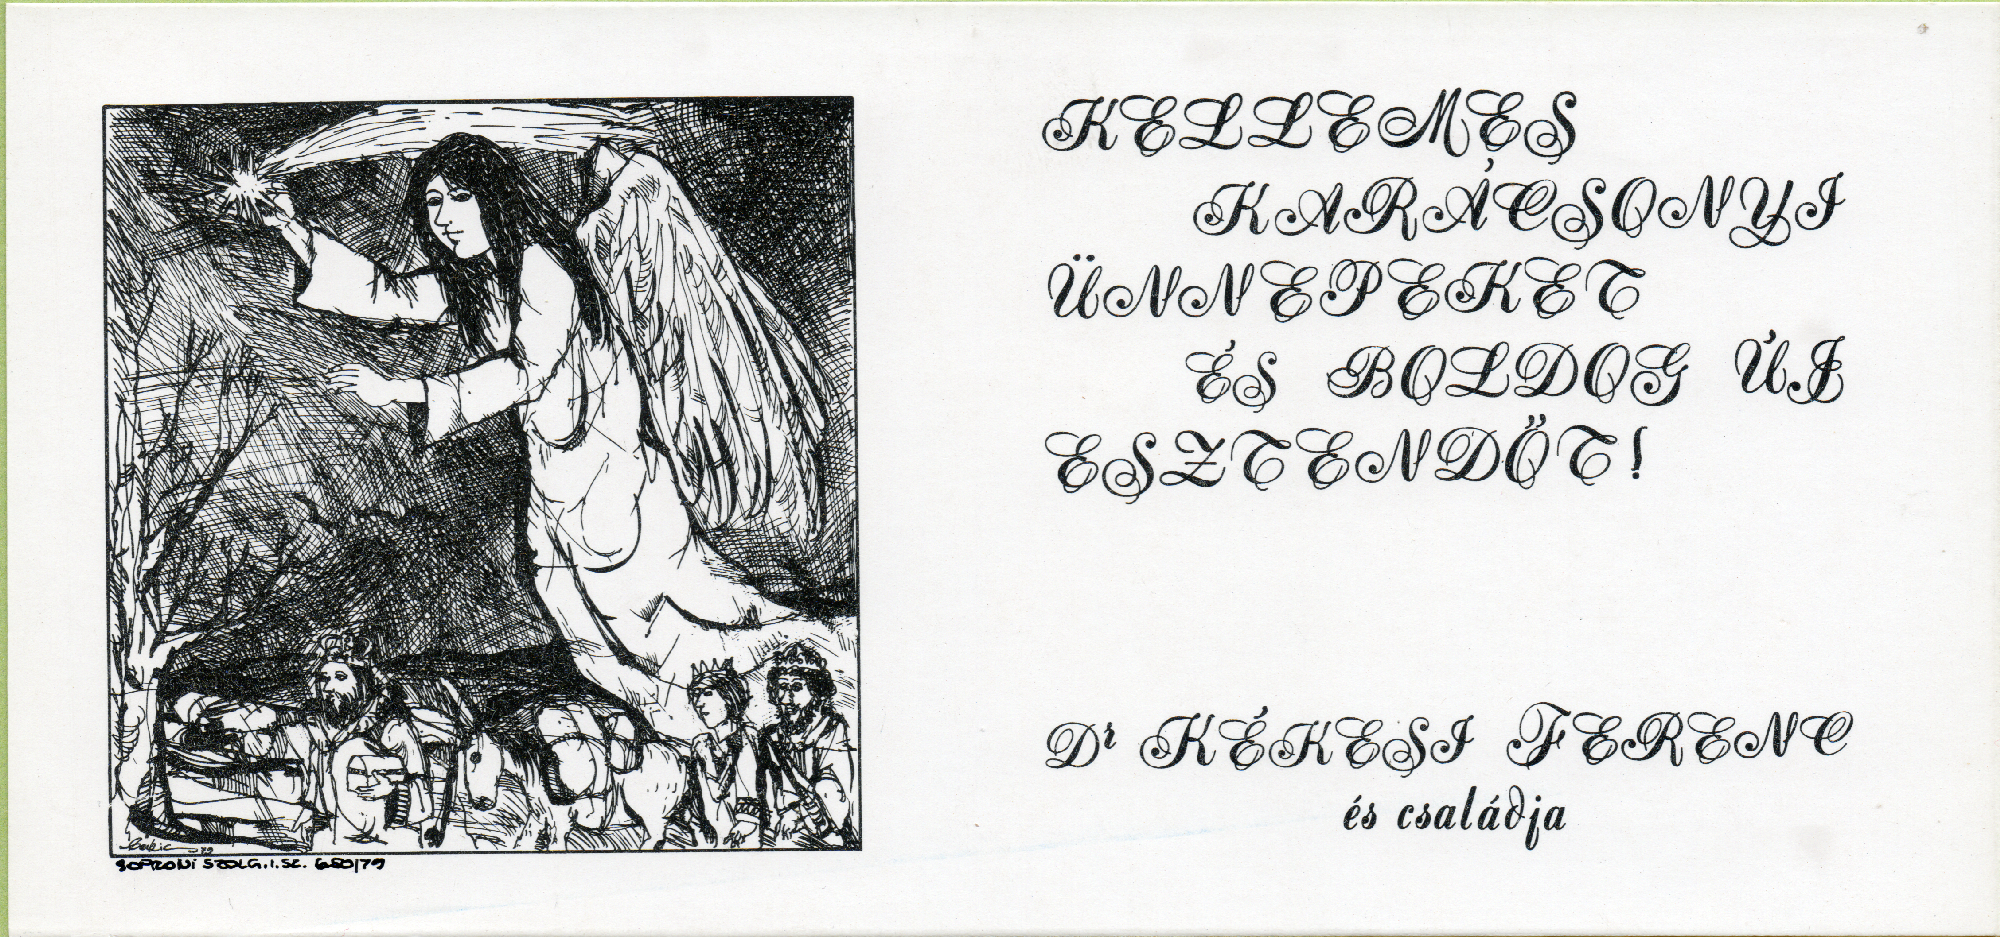 KELLEMES
KARÁCSONYI
ÜNNEPEKET
ÉS BOLDOG ÚJ
ESZTENDŐT!
Dr KÉKESI FERENC
és családja
SOPRONI SZOLG.I.SZ. 680/79